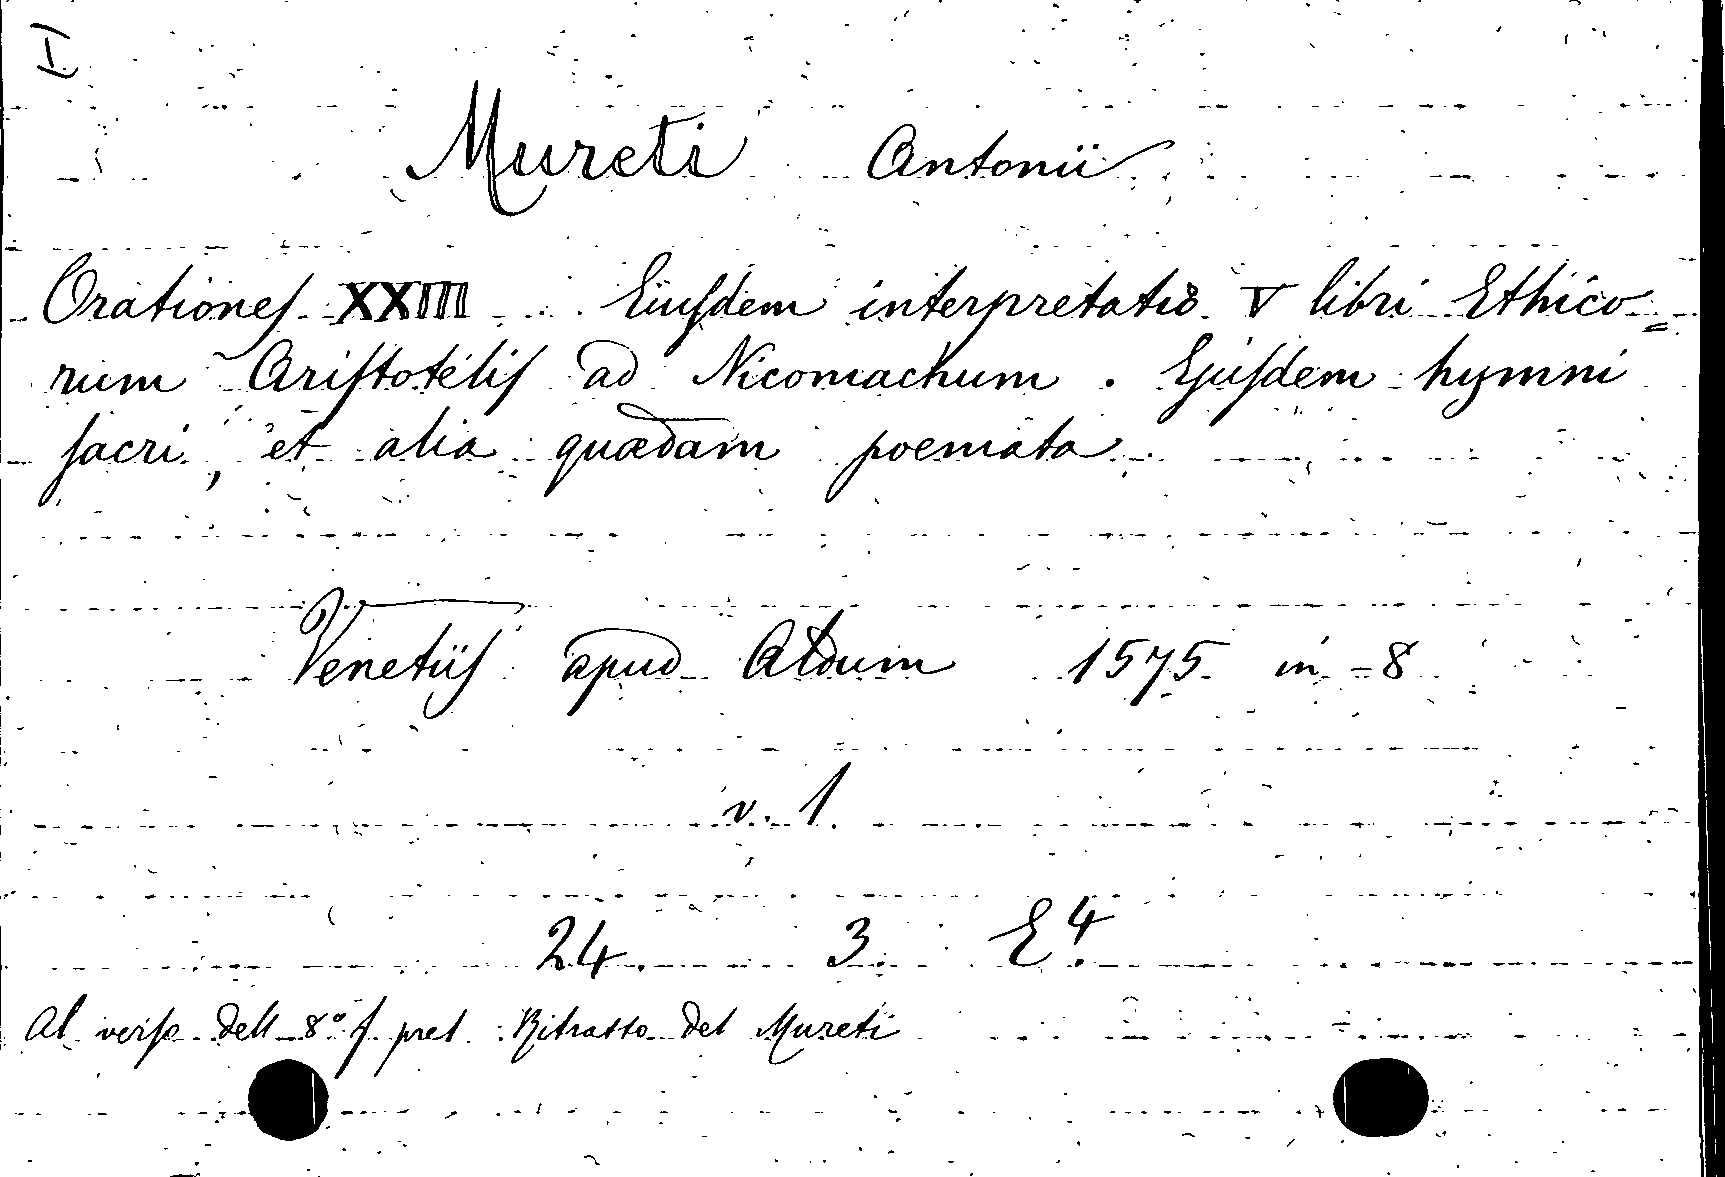 Mureti Antonii
Orationes XXIII Eiusdem interpretatio V libri Ethico=
rum Aristotelis ad Nicomachum. Ejusdem hymni
sacri, et alia quædam poemata
Venetiis apud Aldum 1575 in-8
v. 1.
24. 3. E4.
Al verso dell 8º f. prel. Ritratto del Mureti